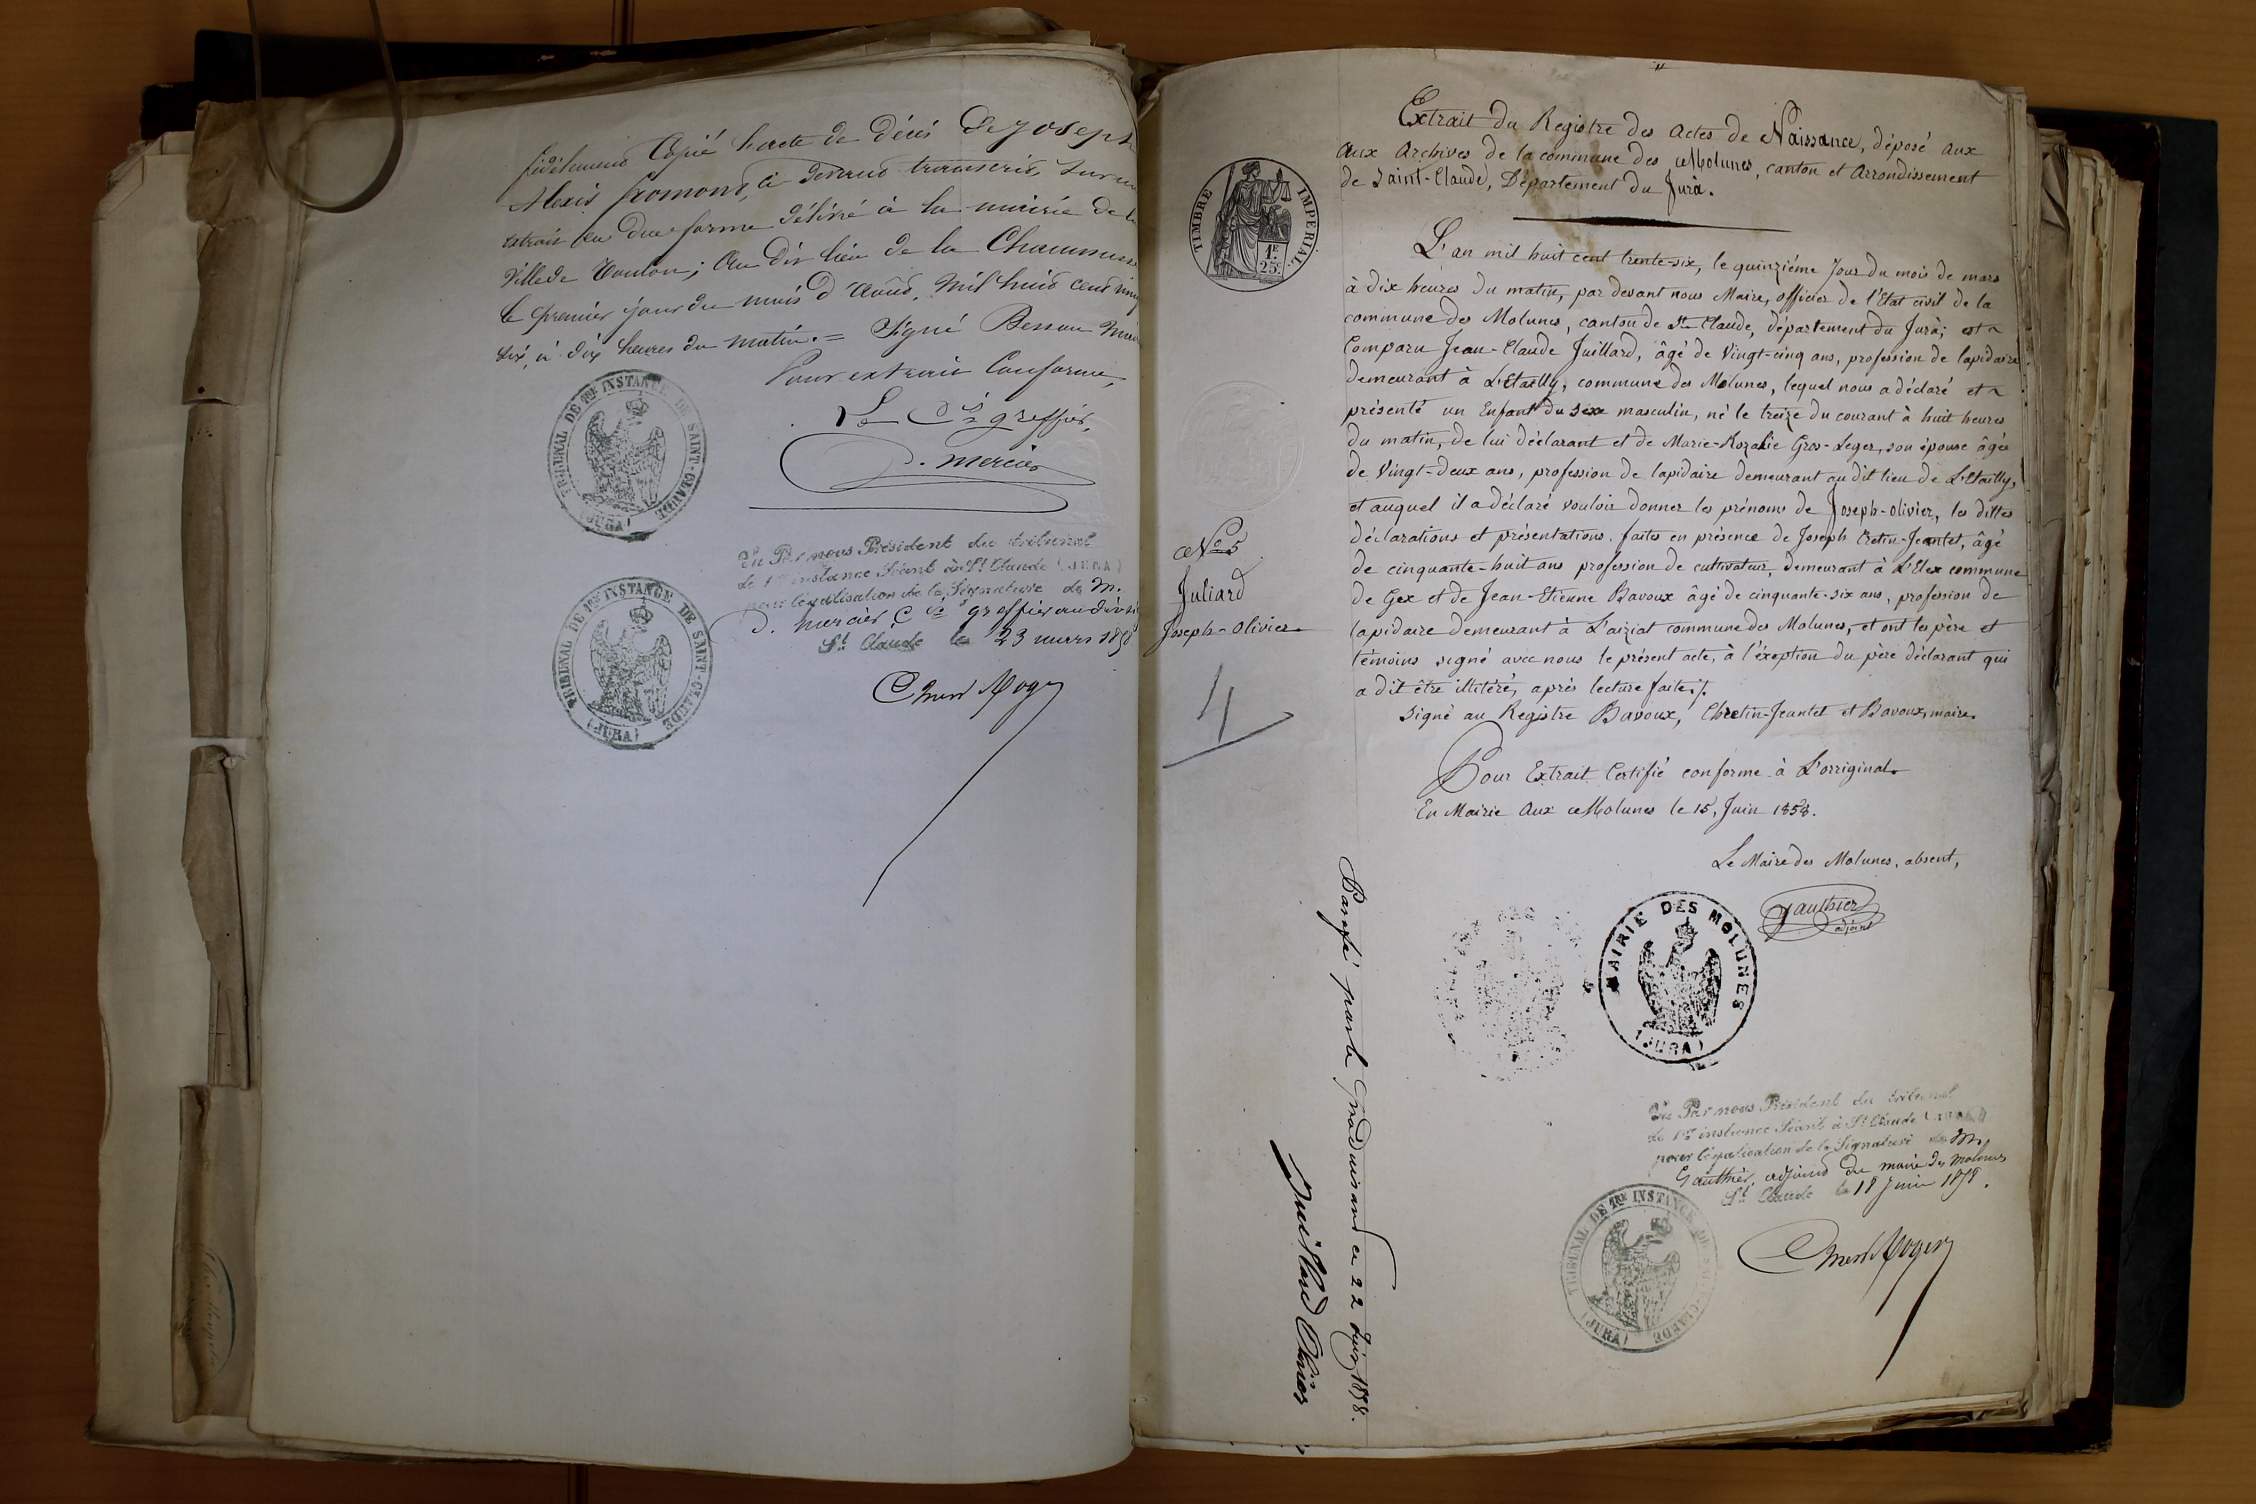 fidèlement Copié l'acte de décès de Joseph
Alexis Gromond, ci devant transcrit, sur un
extrait en due forme délivré à la mairie de la
Ville de Toulon; Au dit lieu de la Chaumusse
le premier jour du mois d'Août, mil huit cent vingt
six, à dix heures du matin. = Signé Besson Maire
Pour extrait Conforme,
Le Cis greffier,
D. Mercier
TRIBUNAL DE 1ERE INSTANCE DE SAINT-CLAUDE (JURA)
Vu Par nous Président du tribunal
de 1re instance Séant à St Claude (JURA)
pour légalisation de la Signature de M.
D. Mercier, Cis greffier au dit
St Claude le 23 mars 185
TRIBUNAL DE 1ERE INSTANCE DE SAINT-CLAUDE (JURA)
TIMBRE IMPERIAL
1F.
25c.
No 5
Juliard
Joseph-Olivier
4
Extrait du Registre des Actes de Naissance, déposé aux
Aux Archives de la commune des Molunes, canton et Arrondissement
de Saint-Claude, Département du Jura.
L'an mil huit cent trente-six, le quinzième Jour du mois de mars
à dix heures du matin, par devant nous Maire, officier de l'Etat civil de la
commune des Molunes, canton de St Claude, département du Jura; est
Comparu Jean-Claude Juillard, âgé de Vingt-cinq ans, profession de lapidaire
demeurant à L'Etailly, commune des Molunes, lequel nous a déclaré et
présenté un Enfant du sexe masculin, né le treize du courant à huit heures
du matin, de lui déclarant et de Marie-Rozalie Gros-Leger, son épouse âgée
de Vingt-deux ans, profession de lapidaire demeurant au dit lieu de L'Etailly,
et auquel il a déclaré vouloir donner les prénoms de Joseph-olivier, les dittes
déclarations et présentations faites en présence de Joseph Cretin-Jeantet, âgé
de cinquante-huit ans profession de cultivateur, demeurant à L'Elex commune
de Gex et de Jean-Etienne Bavoux âgé de cinquante-six ans, profession de
lapidaire demeurant à L'aiziat commune des Molunes, et ont les père et
témoins signé avec nous le présent acte, à l'éxeption du père déclarant qui
a dit être illitéré, après lecture faite./.
Signé au Registre Bavoux, Chretin-Jeantet et Bavoux, maire
Pour Extrait Certifié conforme à L'orriginal
En Mairie Aux Molunes le 15, Juin 1858.
Le Maire des Molunes, absent,
Gauthier
adjoint
MAIRIE DES MOLUNES (JURA)
Vu Par nous Président du tribunal
de 1re instance Séant à St Claude (JURA)
pour légalisation de la Signature de M.
Gauthier, adjoint du maire des molunes
St Claude le 18 Juin 1858.
TRIBUNAL DE 1ERE INSTANCE DE SAINT-CLAUDE (JURA)
Paraphé par le produisant ce 22 Juin 1858.
Juillard Olivier